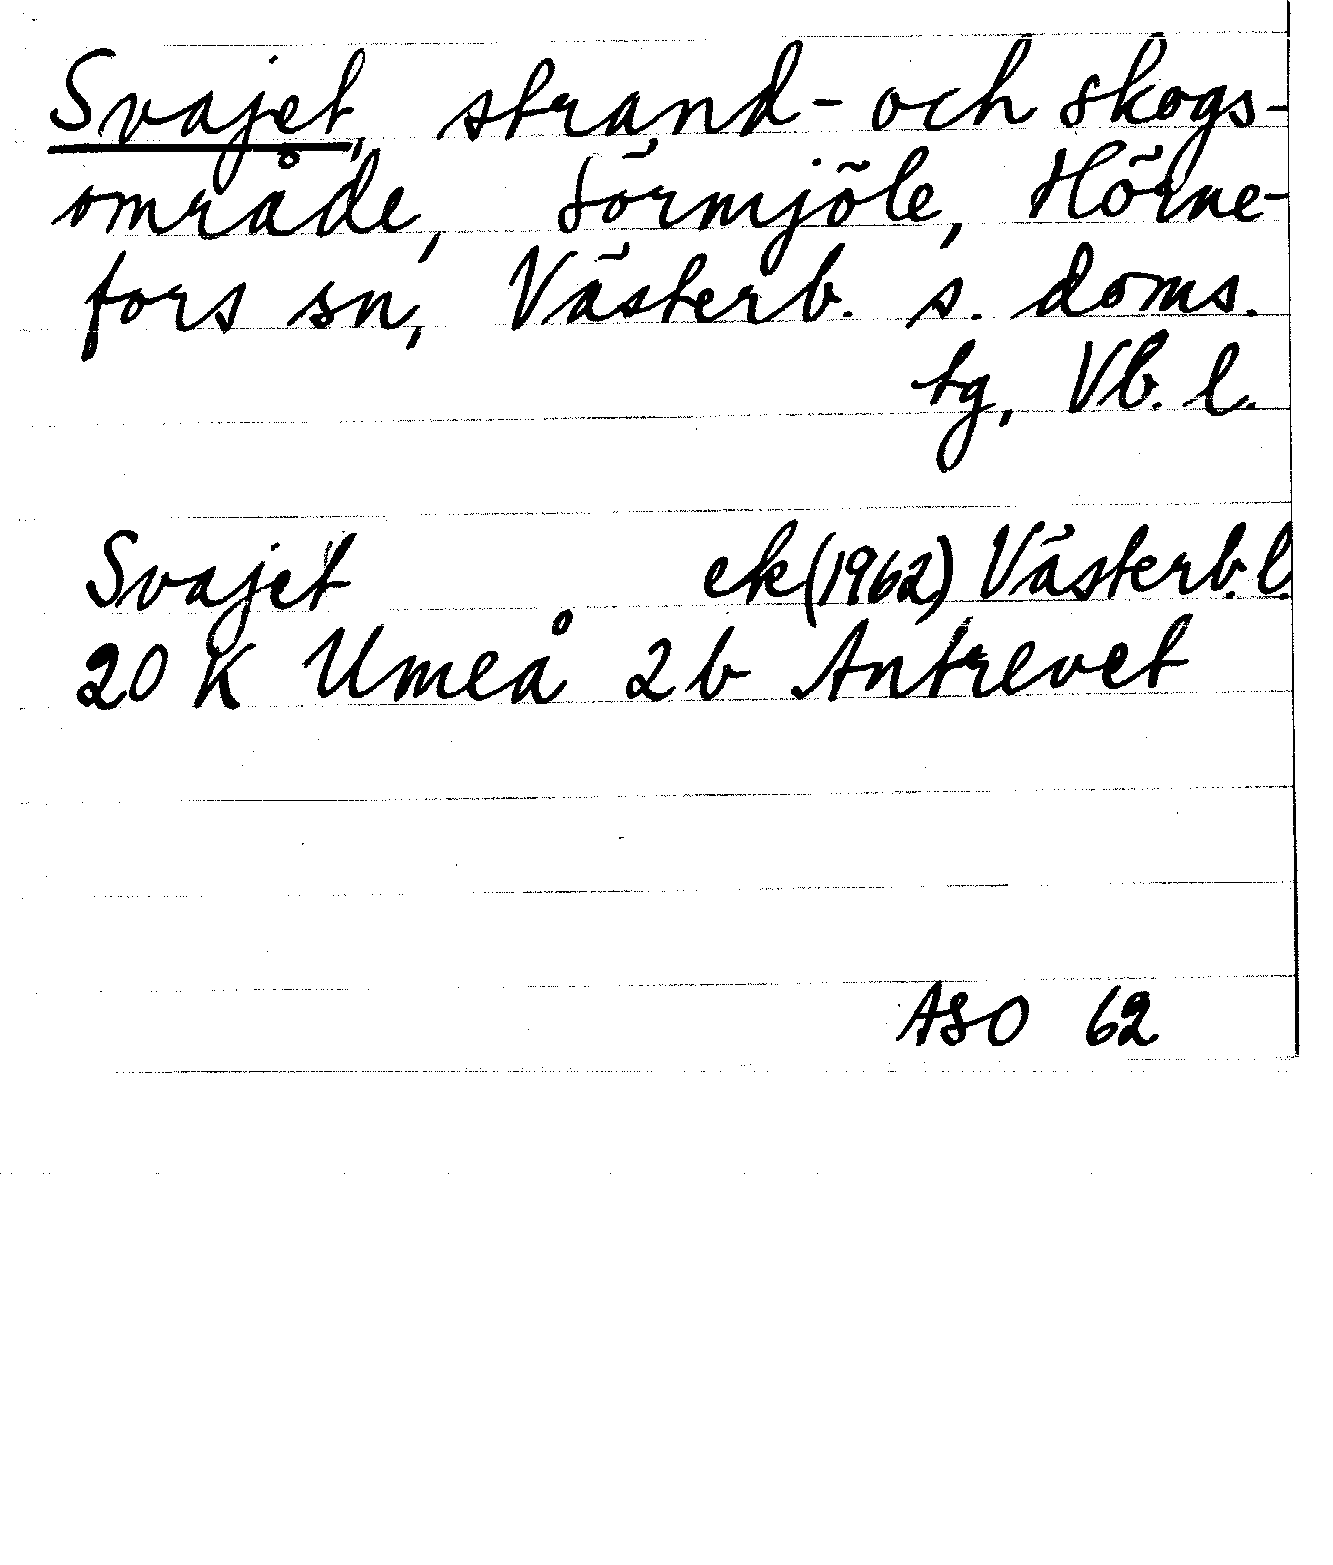 Svajet, strand- och skogs-
område, Sörmjöle, Hörne-
fors sn, Västerb. s. doms.
tg, Vb. l.
Svajet ek (1962) Västerb. l.
20 K Umeå 2 b Antrevet
ASO 62